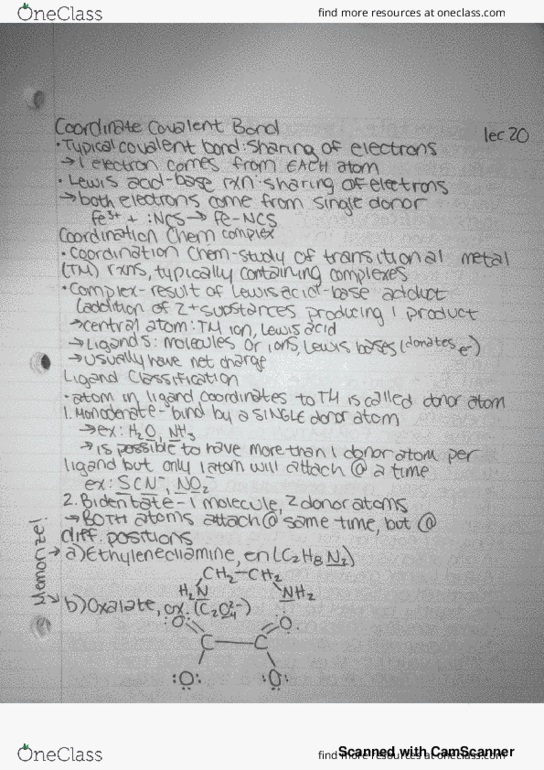 OneClass
find more resources at oneclass.com
lec 20
Coordinate Covalent Bond
• Typical covalent bond: sharing of electrons
→ 1 electron comes from EACH atom
• Lewis acid-base rxn: sharing of electrons
→ both electrons come from single donor
Fe³⁺ + :NCS → Fe-NCS
Coordination Chem complex
• Coordination Chem-study of transitional metal
(TM) rxns, typically containing complexes
• Complex- result of Lewis acid-base adduct
(addition of 2+ substances producing 1 product
→ central atom: TM ion, Lewis acid
→ Ligands: molecules or ions, Lewis bases (donates e⁻)
→ usually have net charge
Ligand Classification
• atom in ligand coordinates to TM is called donor atom
1. Monodenate- bind by a SINGLE donor atom
→ ex: H₂O, NH₃
→ is possible to have more than 1 donor atom per
ligand but only 1 atom will attach @ a time
ex: SCN⁻, NO₂⁻
2. Bidentate - 1 molecule, 2 donor atoms
→ BOTH atoms attach @ same time, but @
diff. positions
Memorize!
→ a) Ethylenediamine, en (C₂H₈N₂)
CH₂-CH₂
H₂N NH₂
→ b) Oxalate, ox. (C₂O₄²⁻)
:O: :O:
C—C
:O: :O:
OneClass
find more resources at oneclass.com
Scanned with CamScanner